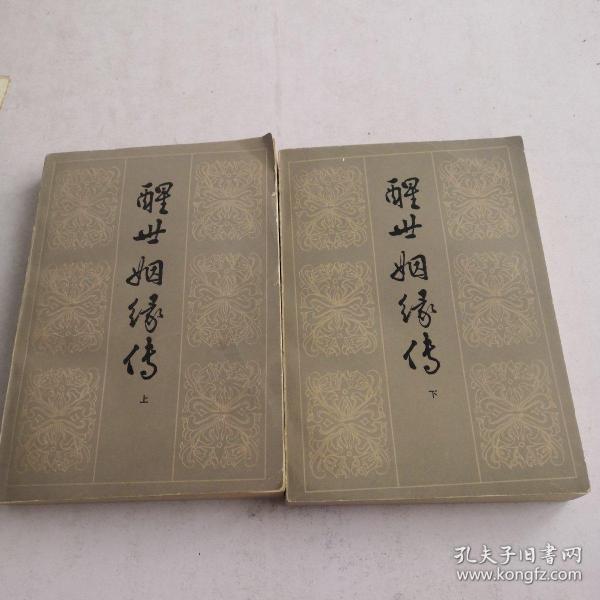 醒世姻缘传
上
醒世姻缘传
下
孔夫子旧书网
www.kongfz.com